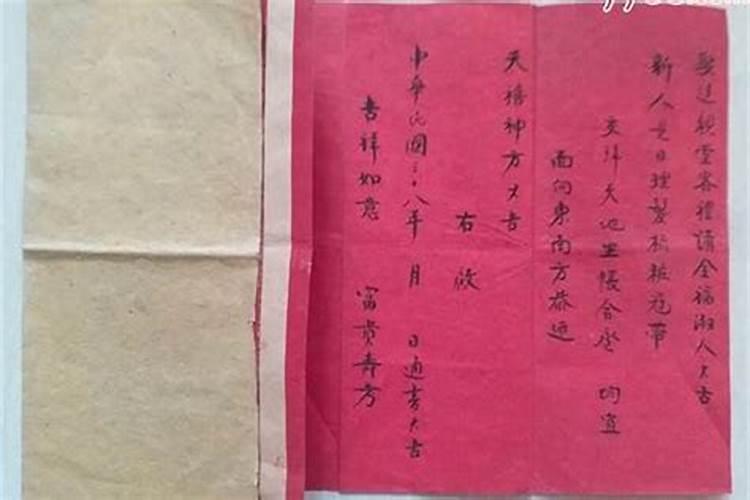 娶送親堂客禮請全福湘人大吉
新人是日理髮梳粧冠帶
交拜天地坐帳合卺 均宜
面向東南方恭迎
天禧神方大吉
右啟
中華民國三十八年 月 日通書大吉
吉祥如意 富貴壽考